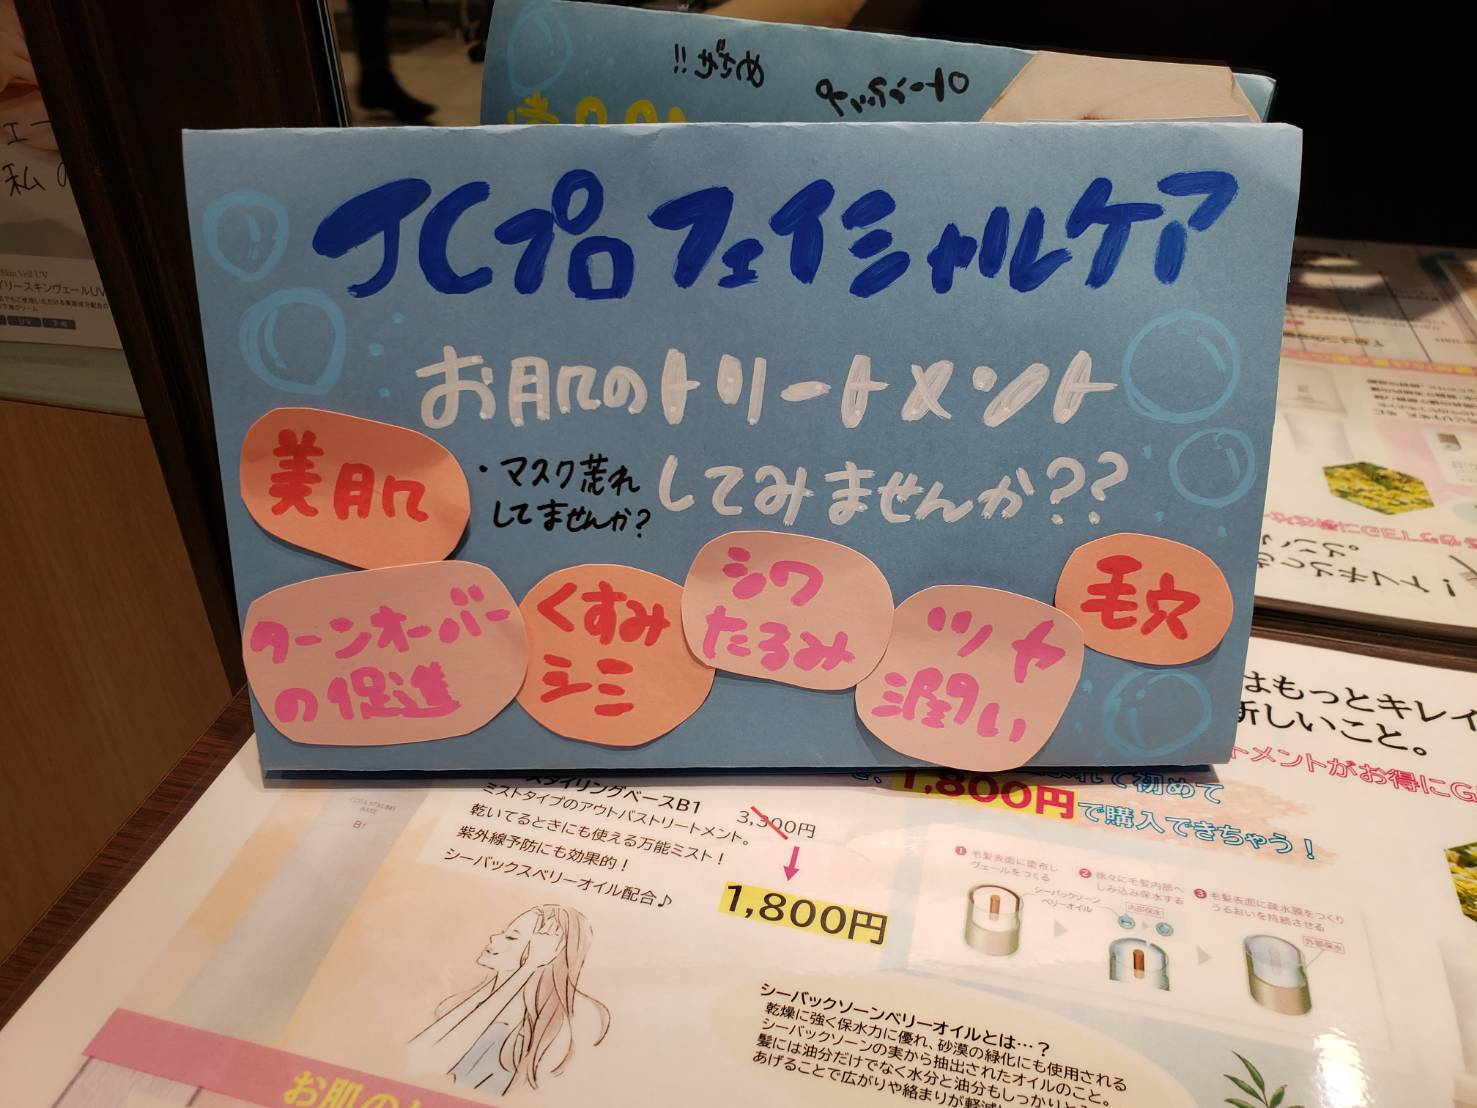 めざせ!!
JCプロ フェイシャルケア
お肌のトリートメント
してみませんか??
・マスク荒れ
してませんか?
美肌
ターンオーバー
の促進
くすみ
シミ
シワ
たるみ
ツヤ
潤い
毛穴
私の
Skin Veil UV
スタイリングベースB1
ミストタイプのアウトバストリートメント。
乾いてるときにも使える万能ミスト!
紫外線予防にも効果的!
シーバックスベリーオイル配合♪
3,300円
↓
1,800円
B1
初めて
1,800円で購入できちゃう!
1 毛髪表面に塗布し
ヴェールをつくる
シーバックソーン
ベリーオイル
2 徐々に毛髪内部へ
しみ込み保水する
内部保水
3 毛髪表面に疎水膜をつくり
うるおいを持続させる
外部保水
はもっとキレイ
新しいこと。
トメントがお得に
シーバックソーンベリーオイルとは…?
乾燥に強く保水力に優れ、砂漠の緑化にも使用される
シーバックソーンの実から抽出されたオイルのこと。
髪には油分だけでなく水分と油分もしっかりと
あげることで広がりや絡まりが軽減
お肌の